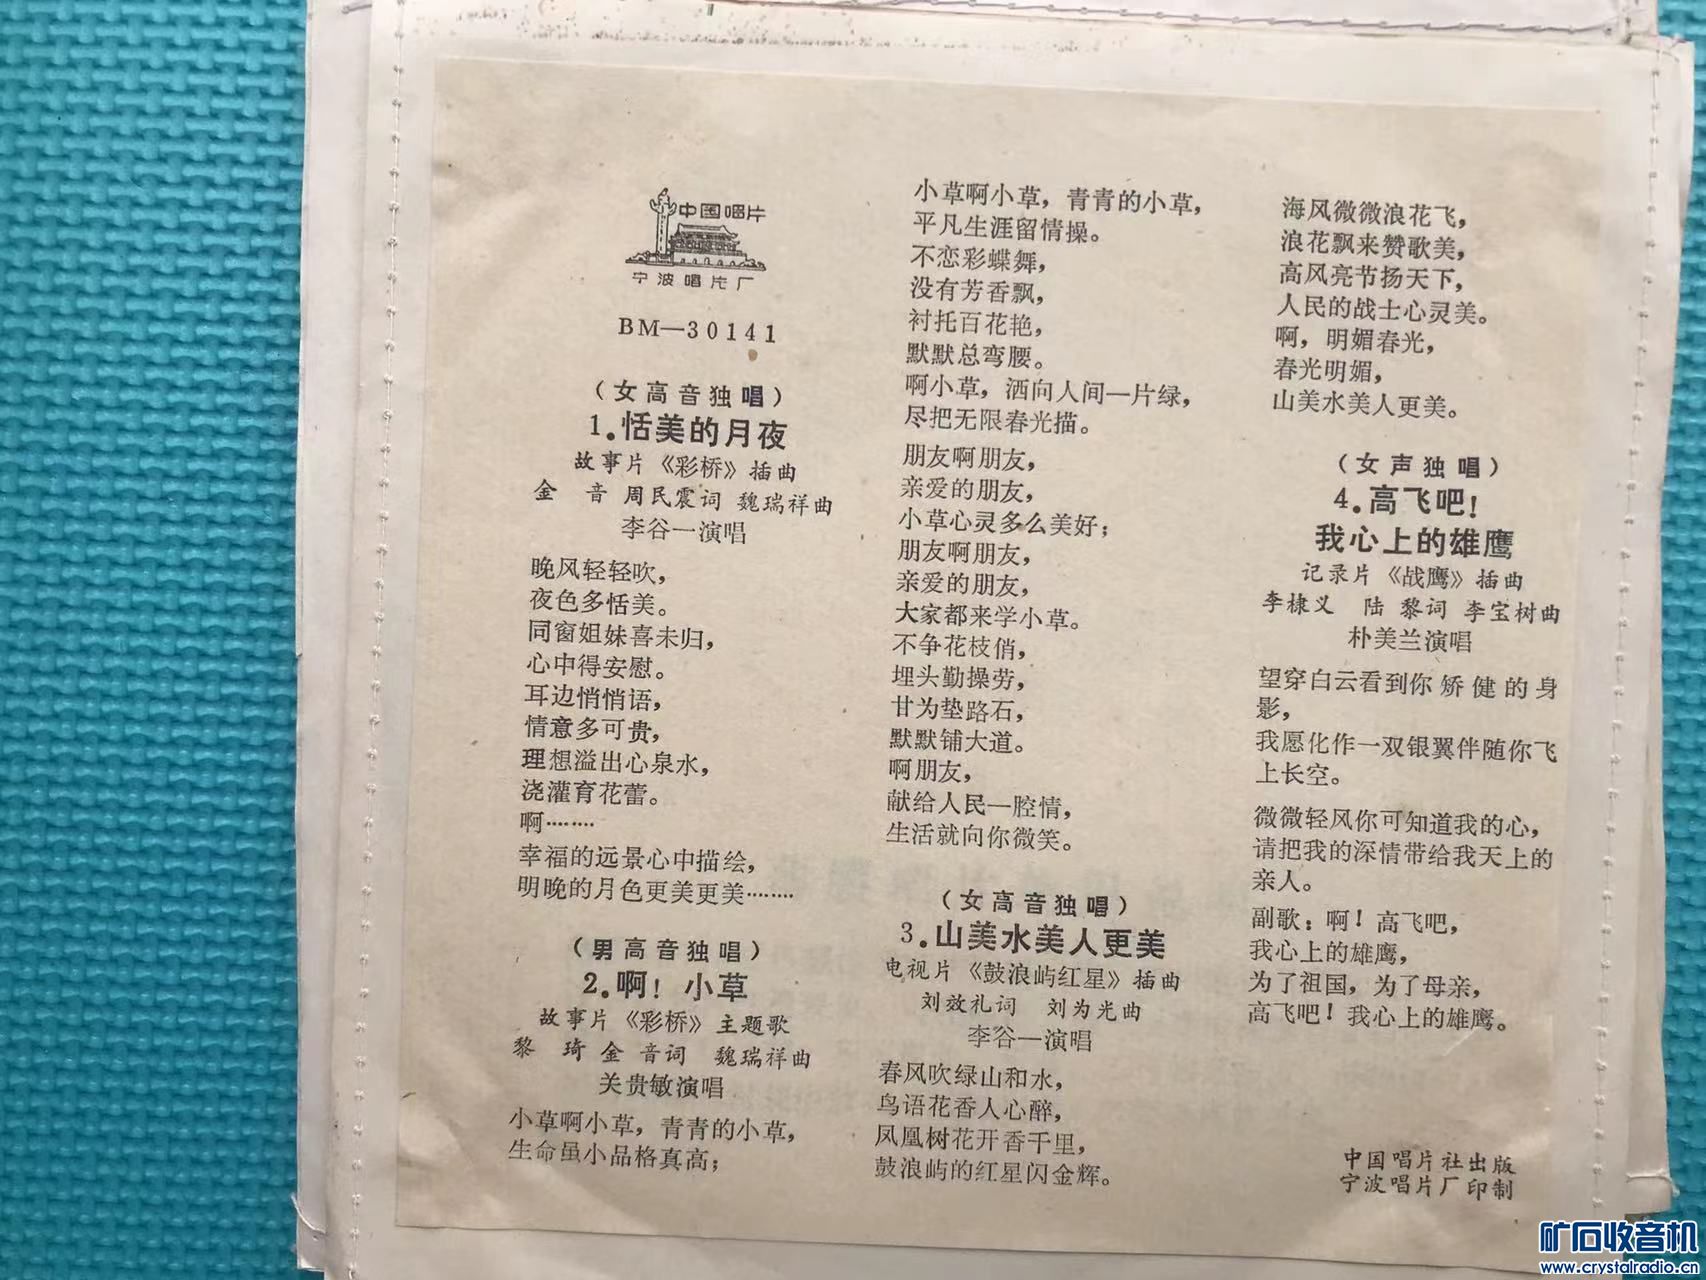 中国唱片
宁波唱片厂
BM—30141
(女高音独唱)
1.恬美的月夜
故事片《彩桥》插曲
金　音 周民震词 魏瑞祥曲
李谷一演唱
晚风轻轻吹，
夜色多恬美。
同窗姐妹喜未归，
心中得安慰。
耳边悄悄语，
情意多可贵，
理想溢出心泉水，
浇灌育花蕾。
啊………
幸福的远景心中描绘，
明晚的月色更美更美………
(男高音独唱)
2.啊！小草
故事片《彩桥》主题歌
黎　琦 金　音词　魏瑞祥曲
关贵敏演唱
小草啊小草，青青的小草，
生命虽小品格真高；
小草啊小草，青青的小草，
平凡生涯留情操。
不恋彩蝶舞，
没有芳香飘，
衬托百花艳，
默默总弯腰。
啊小草，洒向人间一片绿，
尽把无限春光描。
朋友啊朋友，
亲爱的朋友，
小草心灵多么美好；
朋友啊朋友，
亲爱的朋友，
大家都来学小草。
不争花枝俏，
埋头勤操劳，
甘为垫路石，
默默铺大道。
啊朋友，
献给人民一腔情，
生活就向你微笑。
(女高音独唱)
3.山美水美人更美
电视片《鼓浪屿红星》插曲
刘效礼词　刘为光曲
李谷一演唱
春风吹绿山和水，
鸟语花香人心醉，
凤凰树花开香千里，
鼓浪屿的红星闪金辉。
海风微微浪花飞，
浪花飘来赞歌美，
高风亮节扬天下，
人民的战士心灵美。
啊，明媚春光，
春光明媚，
山美水美人更美。
(女声独唱)
4.高飞吧！
我心上的雄鹰
记录片《战鹰》插曲
李棣义　陆　黎词 李宝树曲
朴美兰演唱
望穿白云看到你矫健的身
影，
我愿化作一双银翼伴随你飞
上长空。
微微轻风你可知道我的心，
请把我的深情带给我天上的
亲人。
副歌：啊！高飞吧，
我心上的雄鹰，
为了祖国，为了母亲，
高飞吧！我心上的雄鹰。
中国唱片社出版
宁波唱片厂印制
矿石收音机
www.crystalradio.cn